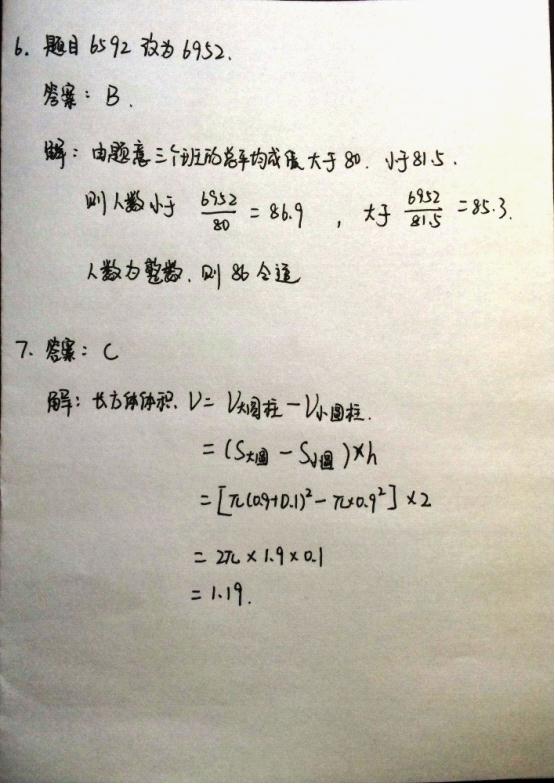 6. 题目 6592 改为 6952.
答案：B.
解：由题意三个班的总平均成绩大于80. 小于81.5.
则人数小于 6952/80 = 86.9 ，大于 6952/81.5 = 85.3.
人数为整数.则86合适
7. 答案：C
解：长方体体积. V = V大圆柱 - V小圆柱.
= (S大圆 - S小圆)×h
= [π(0.9+0.1)² - π×0.9²] × 2
= 2π × 1.9 × 0.1
= 1.19.